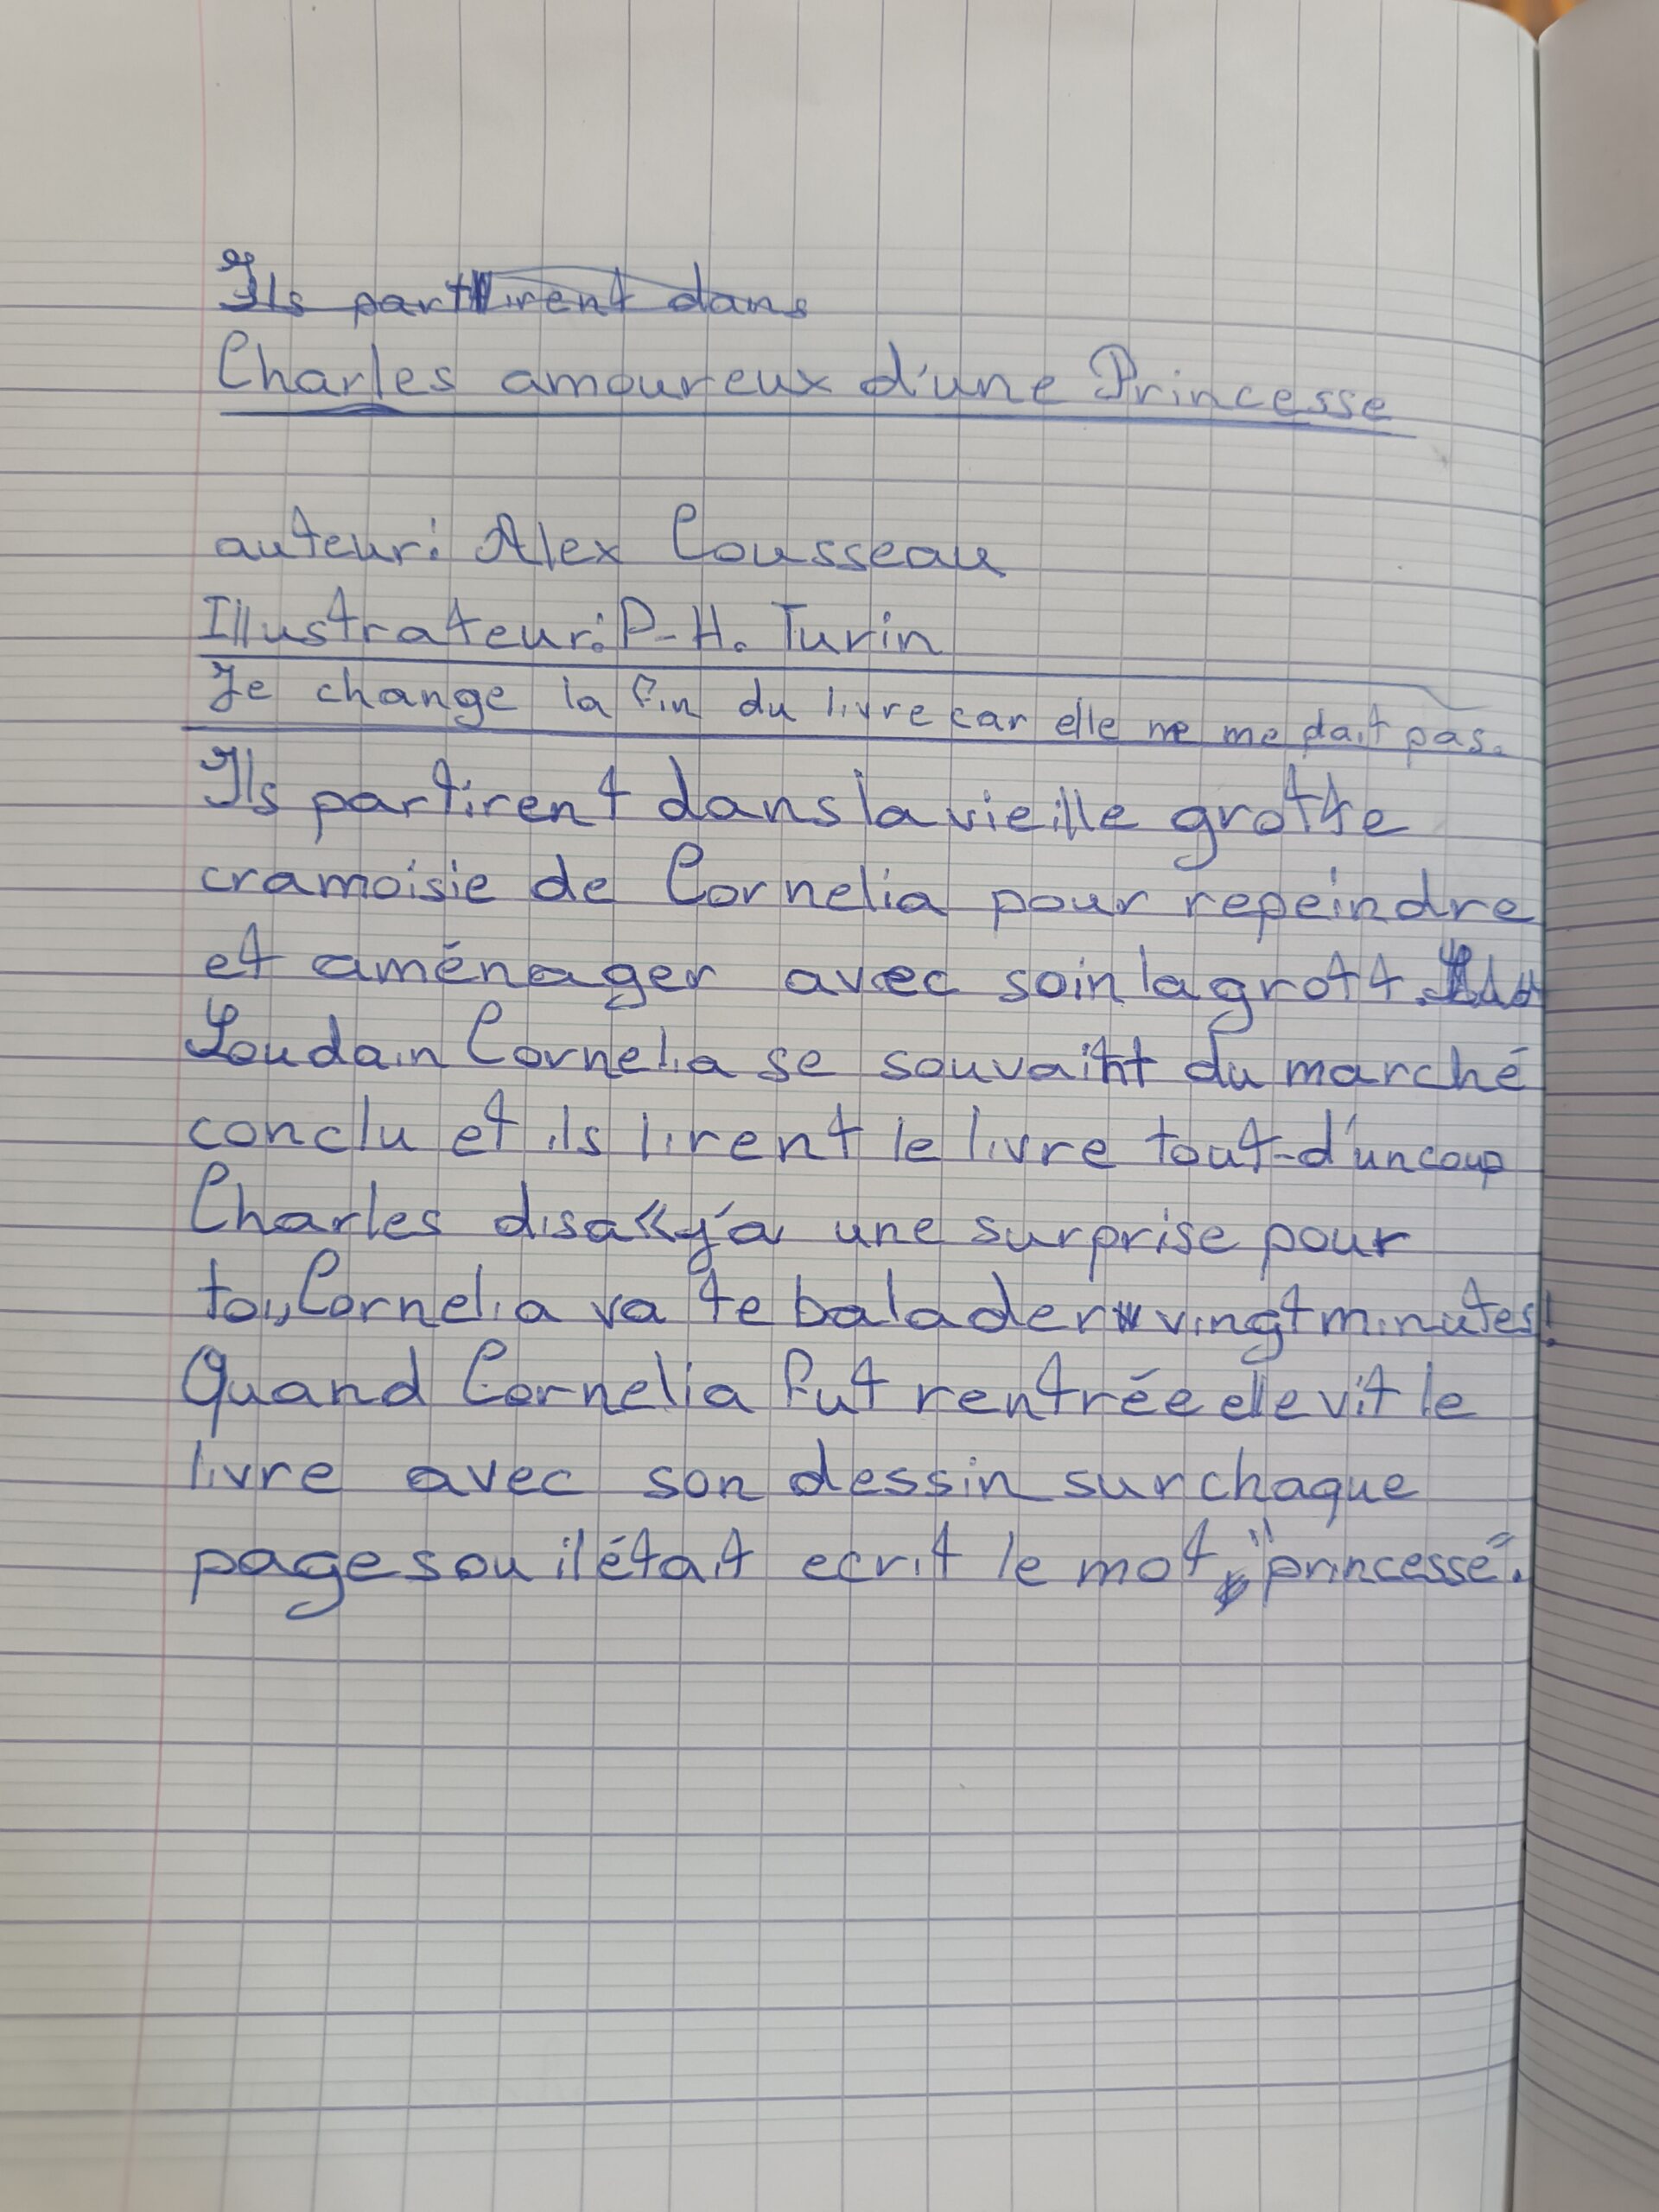 Ils partirent dans
Charles amoureux d'une Princesse
auteur: Alex Cousseau
Illustrateur: P-H. Turin
Je change la fin du livre car elle ne me plait pas.
Ils partirent dans la vieille grotte
cramoisie de Cornelia pour repeindre
et aménager avec soin la grott.
Soudain Cornelia se souvaint du marché
conclu et ils lirent le livre tout-d'un coup
Charles disa «y'a une surprise pour
toi, Cornelia va te balader vingt minutes!
Quand Cornelia fut rentrée elle vit le
livre avec son dessin sur chaque
pages ou il était ecrit le mot "princesse".